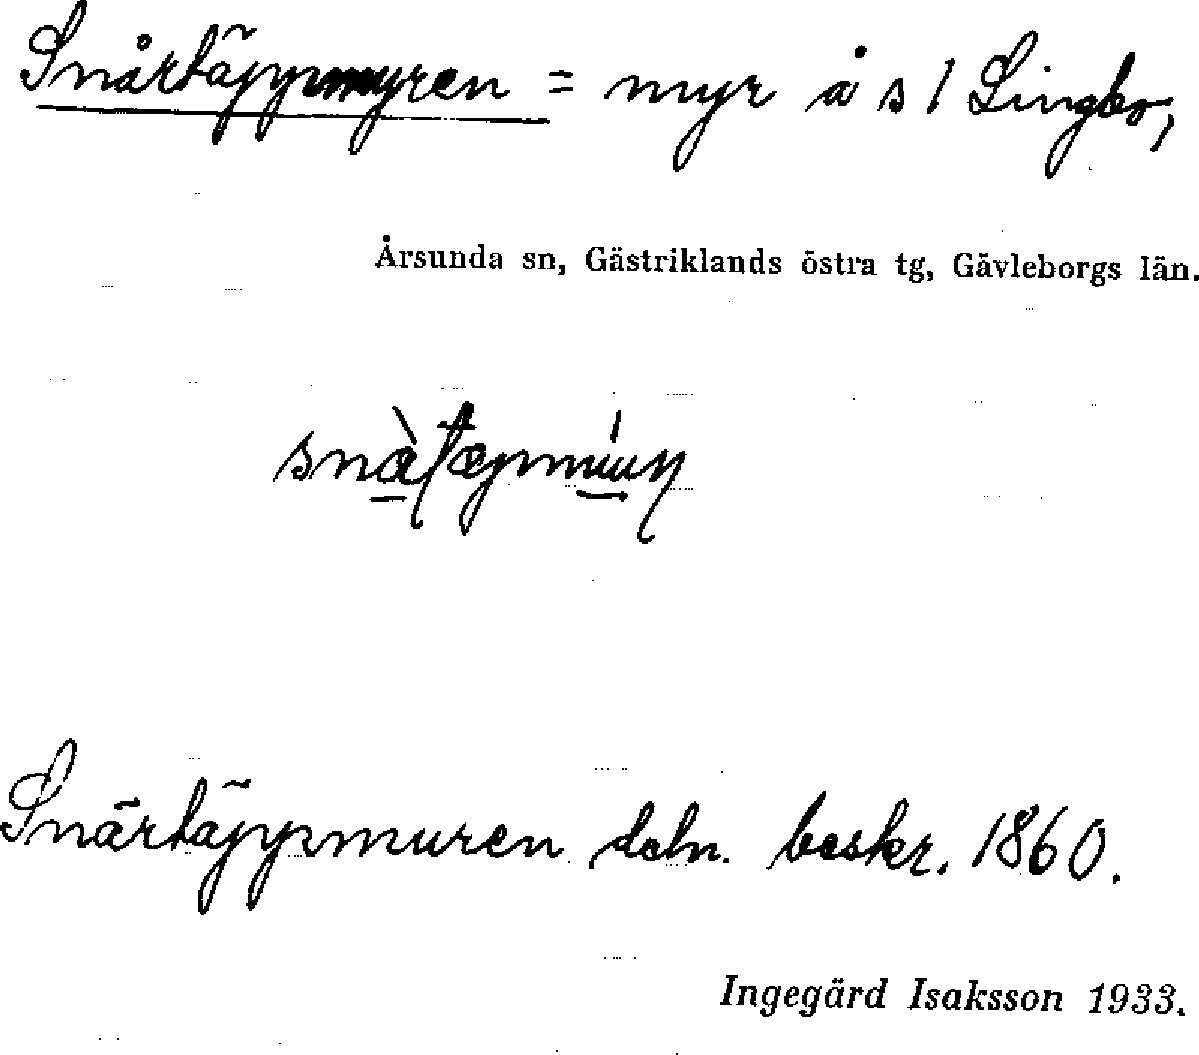 Snårtäppmyren = myr å s / Lingbo,
Årsunda sn, Gästriklands östra tg, Gävleborgs län.
Snärtäppmuren dobn. beskr. 1860.
Ingegärd Isaksson 1933.